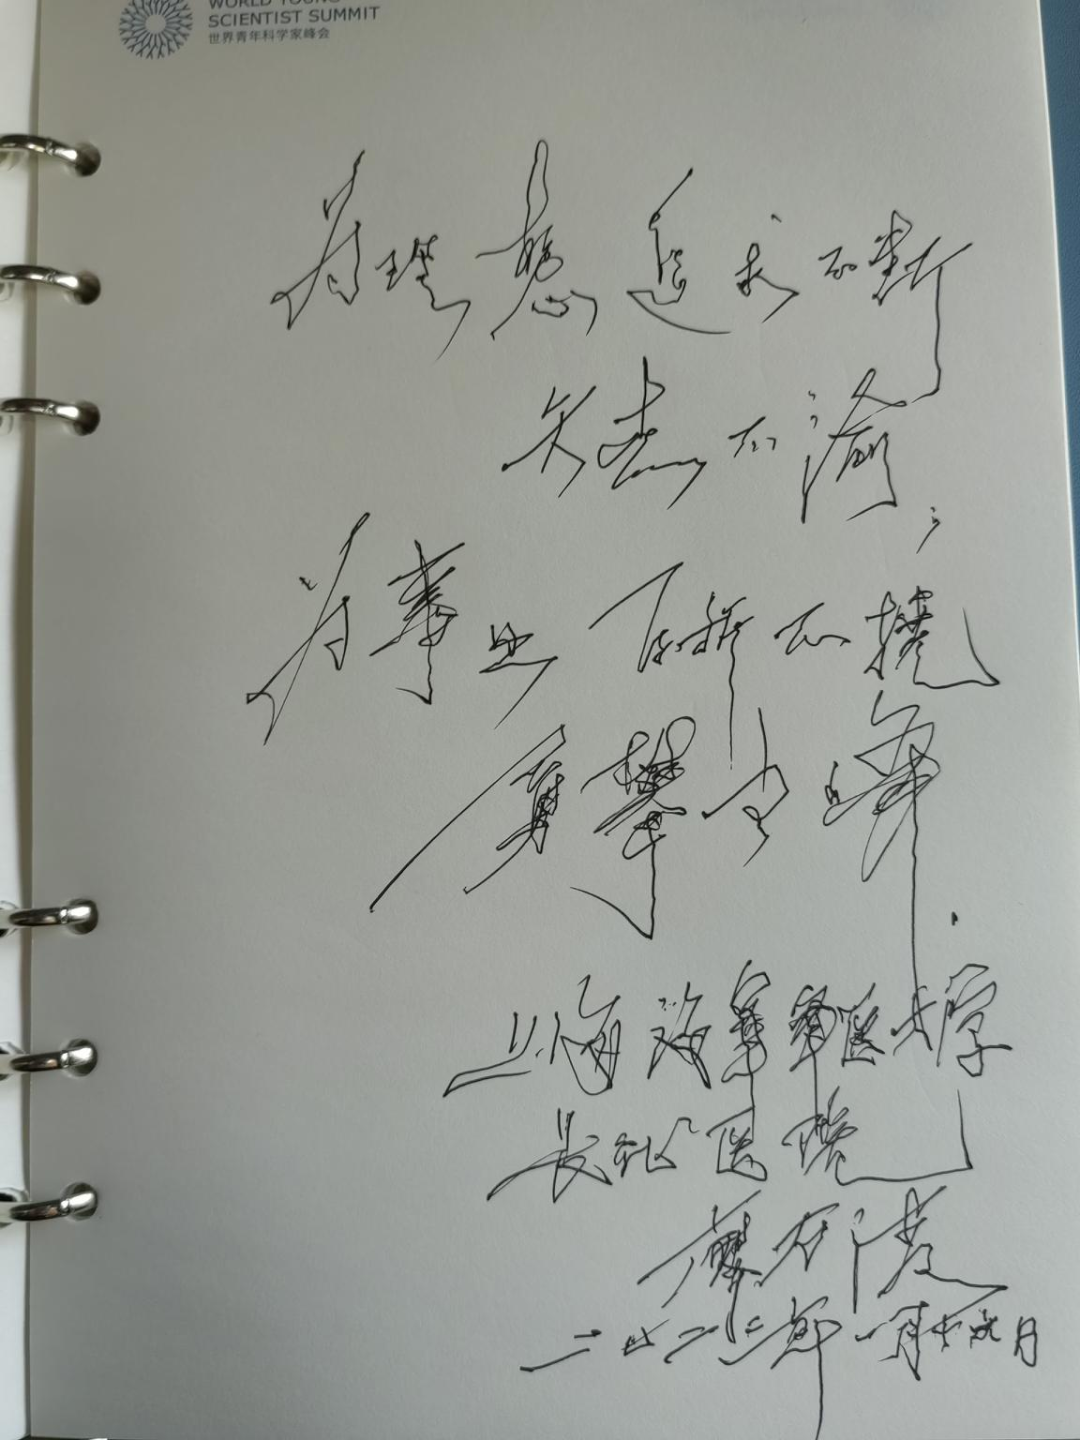 WORLD YOUNG
SCIENTIST SUMMIT
世界青年科学家峰会
为理想追求不断
矢志不渝；
为事业百折不挠
勇攀高峰.
上海海军军医大学
长征医院
廖万清
二〇二二年一月十日